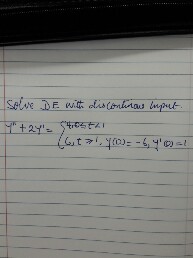 Solve DE with discontinous input.
y" + 2y' = { 4, 0≤t<1
6, t ≥ 1, y(0) = -6, y'(0) = 1